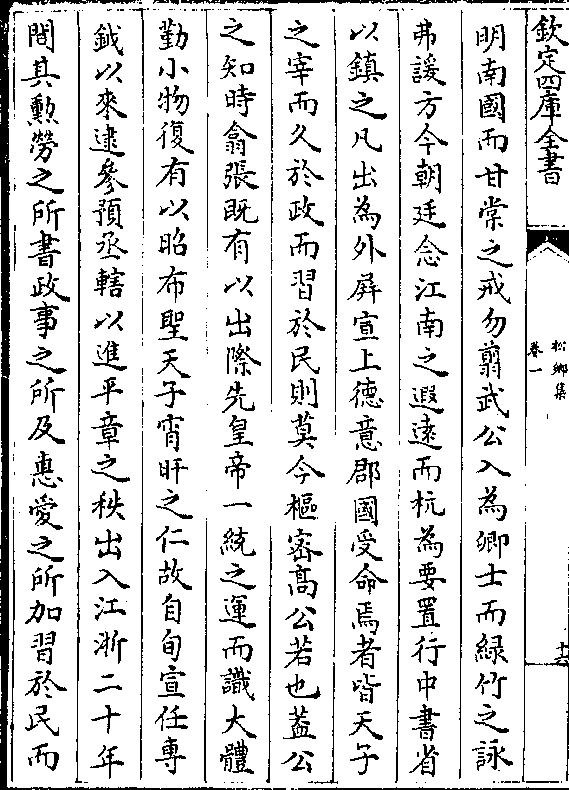 欽定四庫全書
松鄉集
卷一
十六
明南國而甘棠之戒勿翦武公入為卿士而緑竹之詠
弗諼方今朝廷念江南之遐逺而杭為要置行中書省
以鎮之凡出為外屏宣上德意郡國受命焉者皆天子
之宰而久於政而習於民則莫今樞密髙公若也蓋公
之知時翕張既有以出際先皇帝一統之運而識大體
勤小物復有以昭布聖天子宵旰之仁故自旬宣任專
鉞以來逮參預丞轄以進平章之秩出入江浙二十年
間其勲勞之所書政事之所及惠愛之所加習於民而